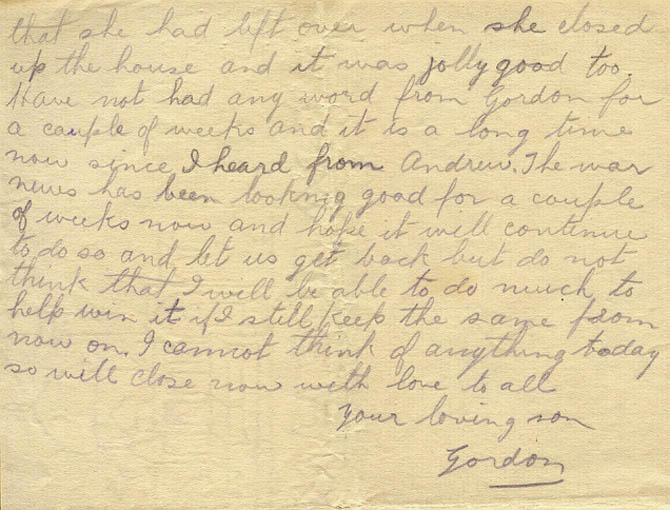 that she had left over when she closed
up the house and it was jolly good too.
Have not had any word from Gordon for
a couple of weeks and it is a long time
now since I heard from Andrew. The war
news has been looking good for a couple
of weeks now and hope it will continue
to do so and let us get back but do not
think that I will be able to do much to
help win it if I still keep the same from
now on. I cannot think of anything today
so will close now with love to all
Your loving son
Gordon